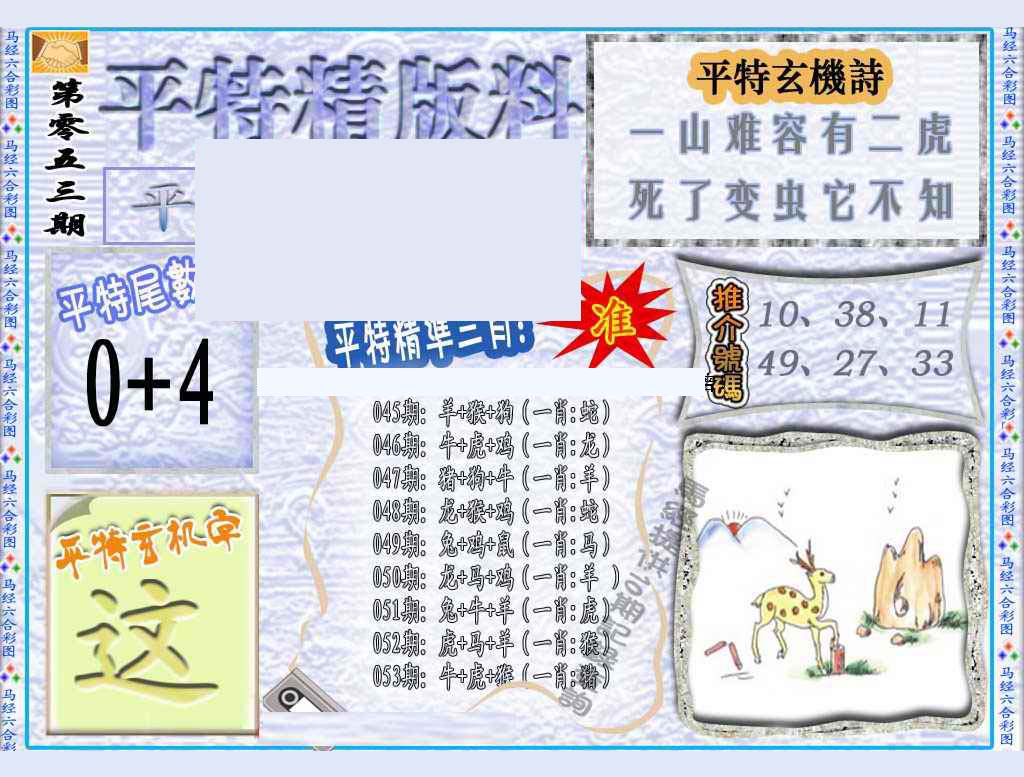 第零五三期
平特精版料
平
平特玄機詩
一山难容有二虎
死了变虫它不知
平特尾數
0+4
平特精準三肖!
准
推介號碼
10、38、11
49、27、33
045期: 羊+猴+狗(一肖:蛇)
046期: 牛+虎+鸡(一肖:龙)
047期: 猪+狗+牛(一肖:羊)
048期: 龙+猴+鸡(一肖:蛇)
049期: 兔+鸡+鼠(一肖:马)
050期: 龙+马+鸡(一肖:羊 )
051期: 兔+牛+羊(一肖:虎)
052期: 虎+马+羊(一肖:猴)
053期: 牛+虎+猴(一肖:猪)
平特玄机字
这
马经六合彩图
马经六合彩图
马经六合彩图
马经六合彩图
马经六合彩图
马经六合彩图
马经六合彩
马经六合彩图
马经六合彩图
马经六合彩图
马经六合彩图
马经六合彩图
马经六合彩图
马经六合彩图